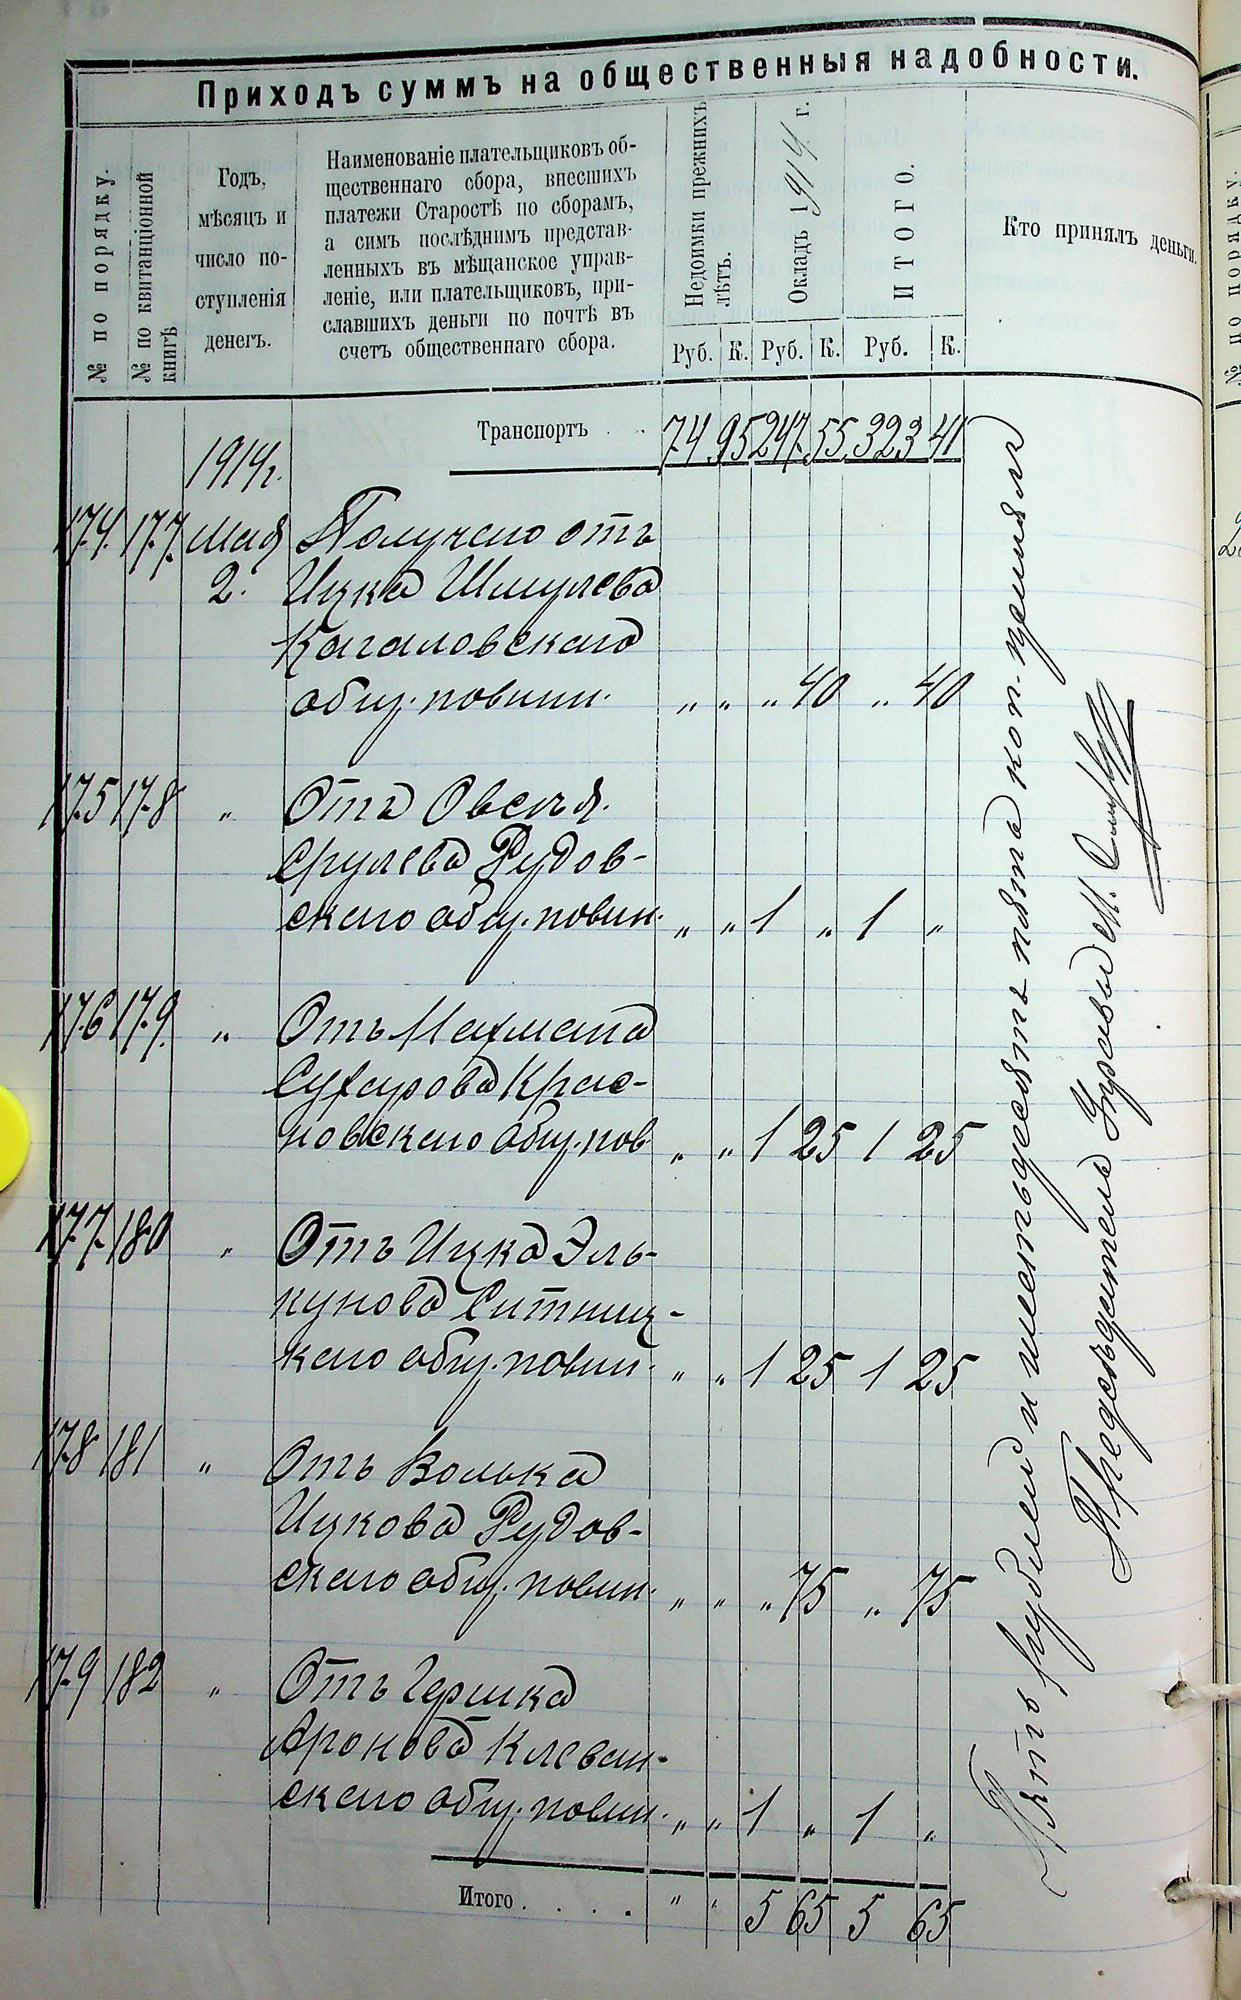 Приходъ суммъ на общественныя надобности.
№ по порядку.
№ по квитанціонной
книгѣ
Годъ,
мѣсяцъ и
число по-
ступленія
денегъ.
Наименованіе плательщиковъ об-
щественнаго сбора, внесшихъ
платежи Старостѣ по сборамъ,
а симъ послѣднимъ представ-
ленныхъ въ мѣщанское управ-
леніе, или плательщиковъ, при-
славшихъ деньги по почтѣ въ
счетъ общественнаго сбора.
Недоимки прежнихъ
лѣтъ.
Окладъ 1914 г.
ИТОГО.
Кто принялъ деньги.
Руб. К. Руб. К. Руб. К.
Транспортъ . . 74 95 247 55 323 41
1914 г.
174. 177. Мая Получено отъ
2. Ицка Шмулева
Кагаловскаго
общ. повин. „ „ „ 40 „ 40
175 178 „ Отъ Овсѣя
Срулева Рудов-
скаго общ. повин. „ „ 1 „ 1 „
176 179. „ Отъ Нахмана
Сухарова Крас-
новскаго общ. пов „ „ 1 25 1 25
177 180 „ Отъ Ицка Эль-
кунова Ситниц-
каго общ. повин. „ „ 1 25 1 25
178 181 „ Отъ Волька
Ицкова Рудов-
скаго общ. повин. „ „ „ 75 „ 75
179 182 „ Отъ Гершка
Аронова Клеван-
скаго общ. повин. „ „ 1 „ 1 „
Итого . . . . „ „ 5 65 5 65
Пять рублей и шестьдесятъ пять коп. принялъ
Предсѣдатель Управы М.
№ по порядку.